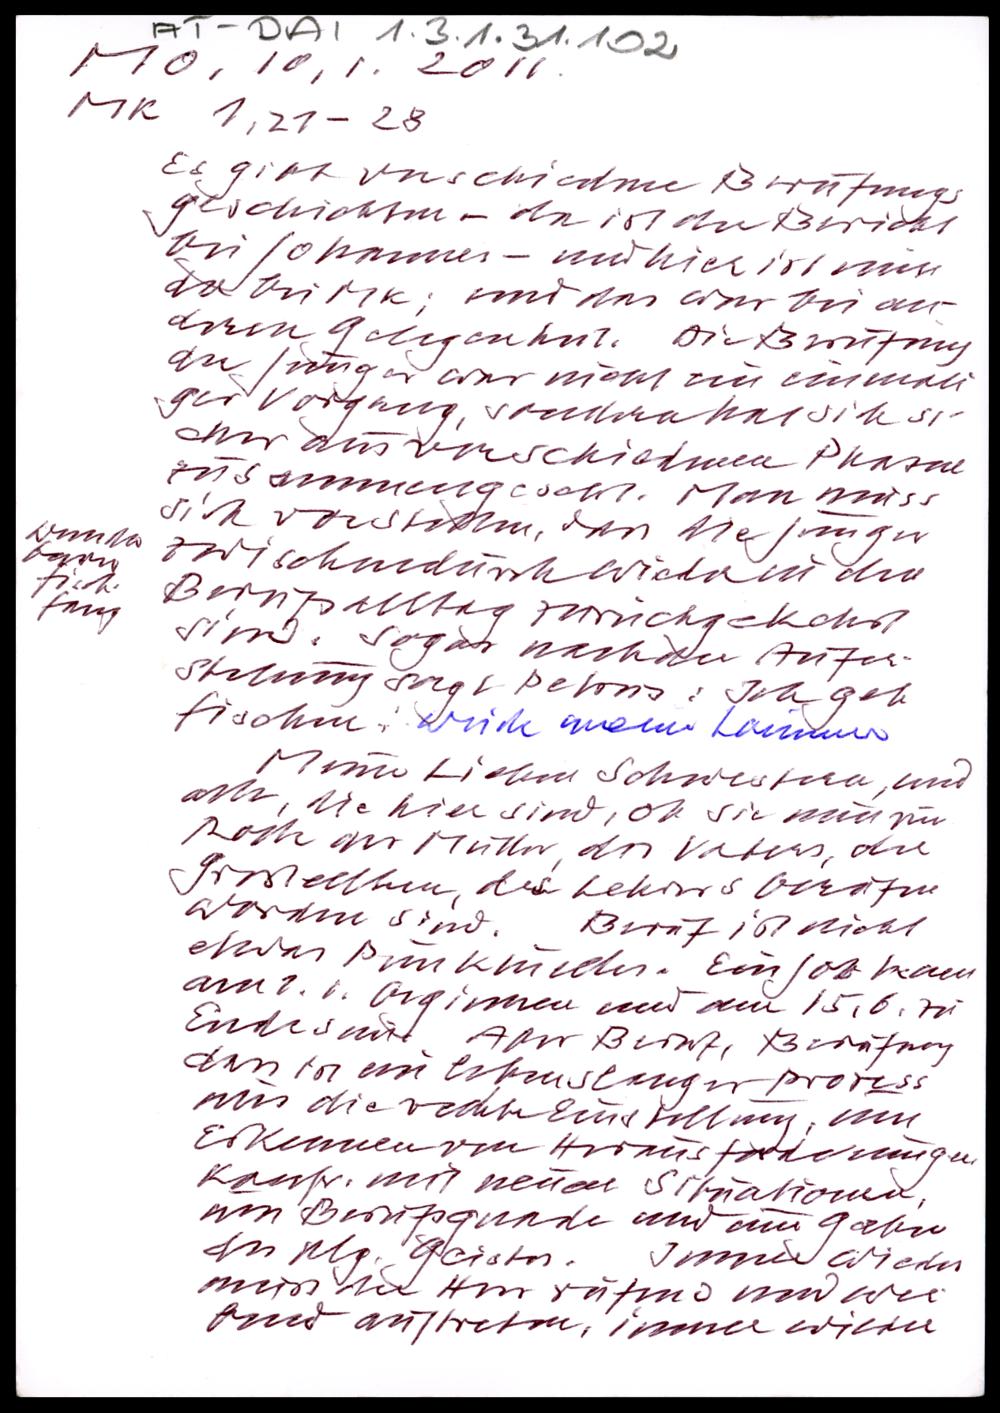 AT-DAI 1.3.1.31.102
MO, 10.1.2011.
MK 1,21-28
Es gibt verschiedene Berufungs
geschichten - da ist der Bericht
bei Johannes - und hier ist nun
da bei Mk; und das war bei an-
deren Gelegenheit. Die Berufung
der Jünger war nicht ein einmali
ger Vorgang, sondern hat sich si-
cher aus verschiedenen Phasen
zusammengesetzt. Man muss
sich vorstellen, dass die Jünger
zwischendurch wieder in den
Berufsalltag zurückgekehrt
sind. Sogar nach der Aufer-
stehung sagt Petrus: Ich geh
fischen! Weide meine Lämmer
wunder
baren
Fisch-
fang
Meine lieben Schwestern, und
alle, die hier sind, ob Sie nun zur
Rolle der Mutter, des Vaters, der
Grosseltern, des Lehrers berufen
worden sind. Beruf ist nicht
etwas Punktuelles. Ein Job kann
am 1.1. beginnen und am 15.6. zu
Ende sein. Aber Beruf, Berufung
das ist ein lebenslanger Prozess
um die rechte Einstellung, um
Erkennen von Herausforderungen
Konfr. mit neuen Situationen,
um Berufsgnade und um Gaben
des Hlg. Geistes. Immer wieder
muss der Herr rufend und
auftreten, immer wieder